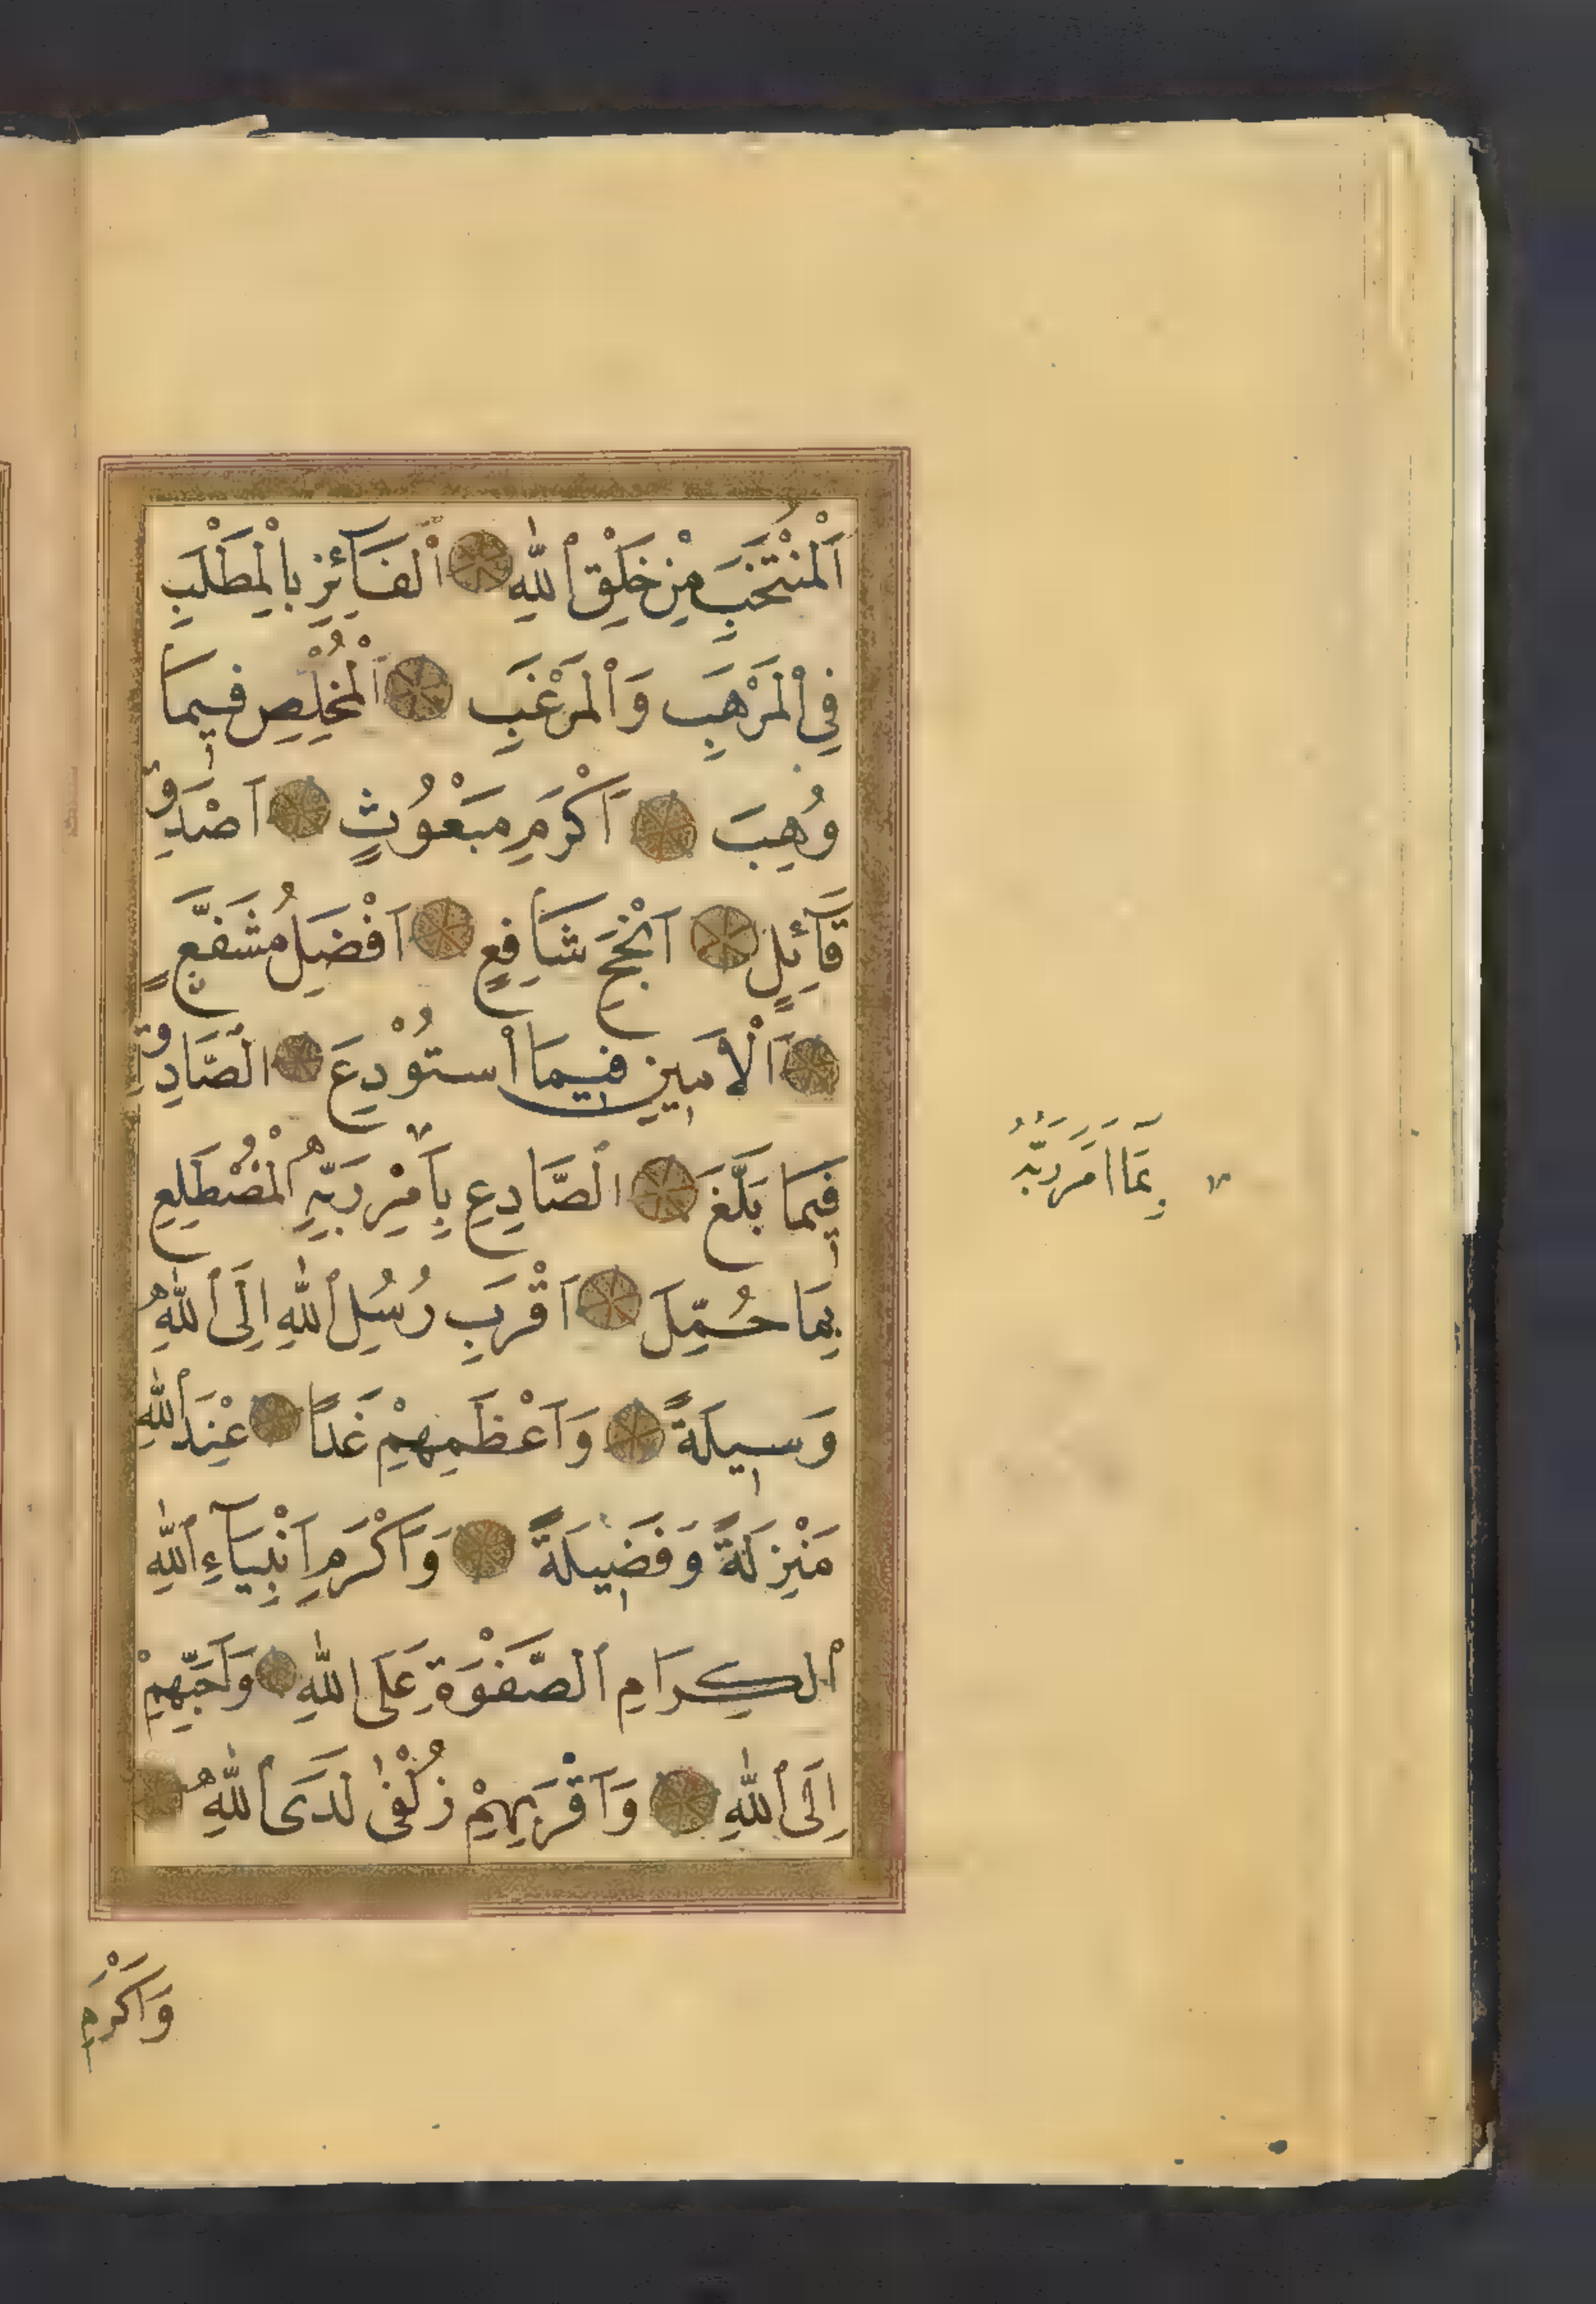 اَلْمُنْتَخَبِ مِنْ خَلْقِ ٱللّٰهِ ۝ اَلْفَآئِزِ بِالْمَطْلَبِ
فِى الْمَرْهَبِ وَالْمَرْغَبِ ۝ اَلْمُخْلِصِ فِيمَا
وُهِبَ ۝ اَكْرَمِ مَبْعُوثٍ ۝ اَصْدَقِ
قَآئِلٍ ۝ اَنْجَحِ شَافِعٍ ۝ اَفْضَلِ مُشَفَّعٍ
۝ اَلْاَمِينِ فِيمَا اسْتُوْدِعَ ۝ الصَّادِقِ
فِيمَا بَلَّغَ ۝ الصَّادِعِ بِاَمْرِ رَبِّهِ الْمُضْطَلِعِ
بِمَا حُمِّلَ ۝ اَقْرَبِ رُسُلِ اللّٰهِ اِلَى اللّٰهِ
وَسِيلَةً ۝ وَاَعْظَمِهِمْ غَدًا ۝ عِنْدَ اللّٰهِ
مَنْزِلَةً وَفَضِيلَةً ۝ وَاَكْرَمِ اَنْبِيَآءِ اللّٰهِ
الْكِرَامِ الصَّفْوَةِ عَلَى اللّٰهِ ۝ وَاَحَبِّهِمْ
اِلَى اللّٰهِ ۝ وَاَقْرَبِهِمْ زُلْفٰى لَدَى اللّٰهِ ۝
وَاَكْرَمِ
بِمَآ اَمَرَ رَبُّهُ